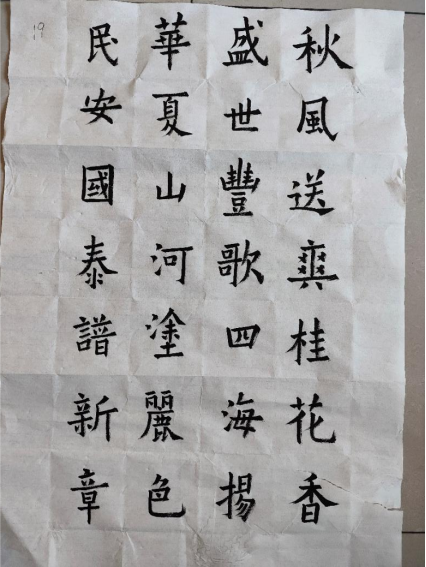 秋風送爽桂花香
盛世豐歌四海揚
華夏山河塗麗色
民安國泰譜新章
19